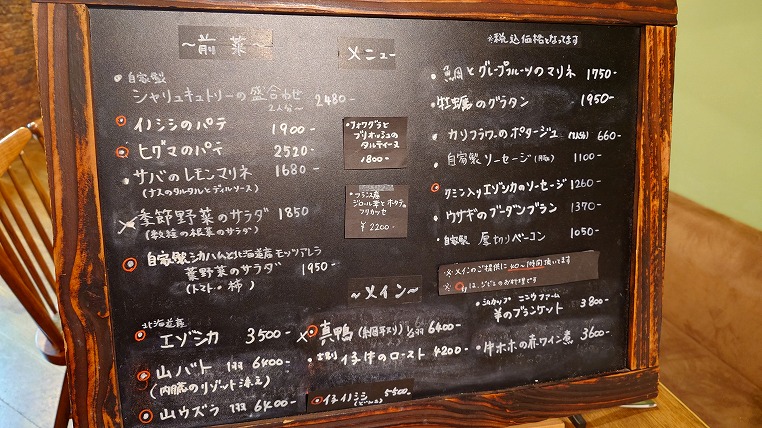 ～前菜～
メニュー
※税込価格となってます
・自家製
シャリュキュトリーの盛合わせ
2人分～ 2480
イノシシのパテ 1900-
ヒグマのパテ 2520-
・サバのレモンマリネ 1680-
(ナスのタルタルとディルソース)
季節野菜のサラダ 1850
(数種の根菜のサラダ)
自家製シカハムと北海道産モッツァレラ
葉野菜のサラダ 1950-
(トマト・柿)
・フォワグラと
ブリオッシュの
タルティーヌ
1800-
・フランス産
ジロール茸とホタテの
フリカッセ
¥2200-
・鯛とグレープフルーツのマリネ 1750-
・牡蠣のグラタン 1950-
・カリフラワーのポタージュ 660-
・自家製ソーセージ(豚) 1100-
クミン入りエゾシカのソーセージ 1260-
・ウサギのブーダンブラン 1370-
・自家製 厚切りベーコン 1050-
※メインのご提供に40～1時間頂いてます
※○はジビエのお料理です
～メイン～
北海道産
エゾシカ 3500-
山バト 1羽 6400-
(内臓のリゾット添え)
山ウズラ 1羽 6400-
真鴨 1/2羽 6400-
仔牛のロースト 4200-
仔イノシシ 5500-
ファーム
羊のブランケット 3800-
・牛ホホの赤ワイン煮 3600-